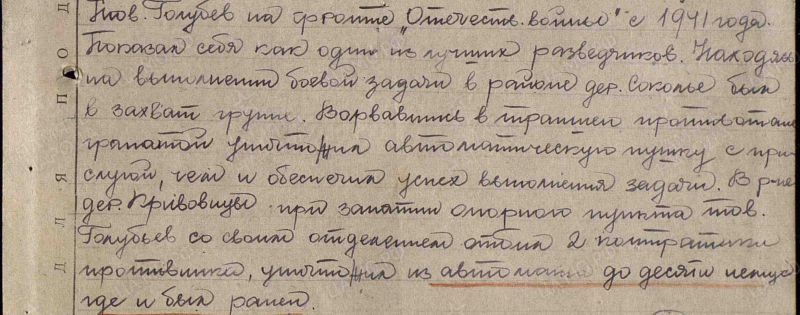 Тов. Голубев на фронте "Отечеств. войны" с 1941 года.
Показал себя как один из лучших разведчиков. Находясь
на выполнении боевой задачи в районе дер. Соколье был
в захват группе. Ворвавшись в траншеи противотан
гранатой уничтожил автоматическую пушку с при-
слугой, чем и обеспечил успех выполнения задачи. В р-не
дер. Кривовицы при занятии опорного пункта тов.
Голубьев со своим отделением отбил 2 контратаки
противника, уничтожил из автомата до десяти немцев
где и был ранен.
ДЛЯ ПОД